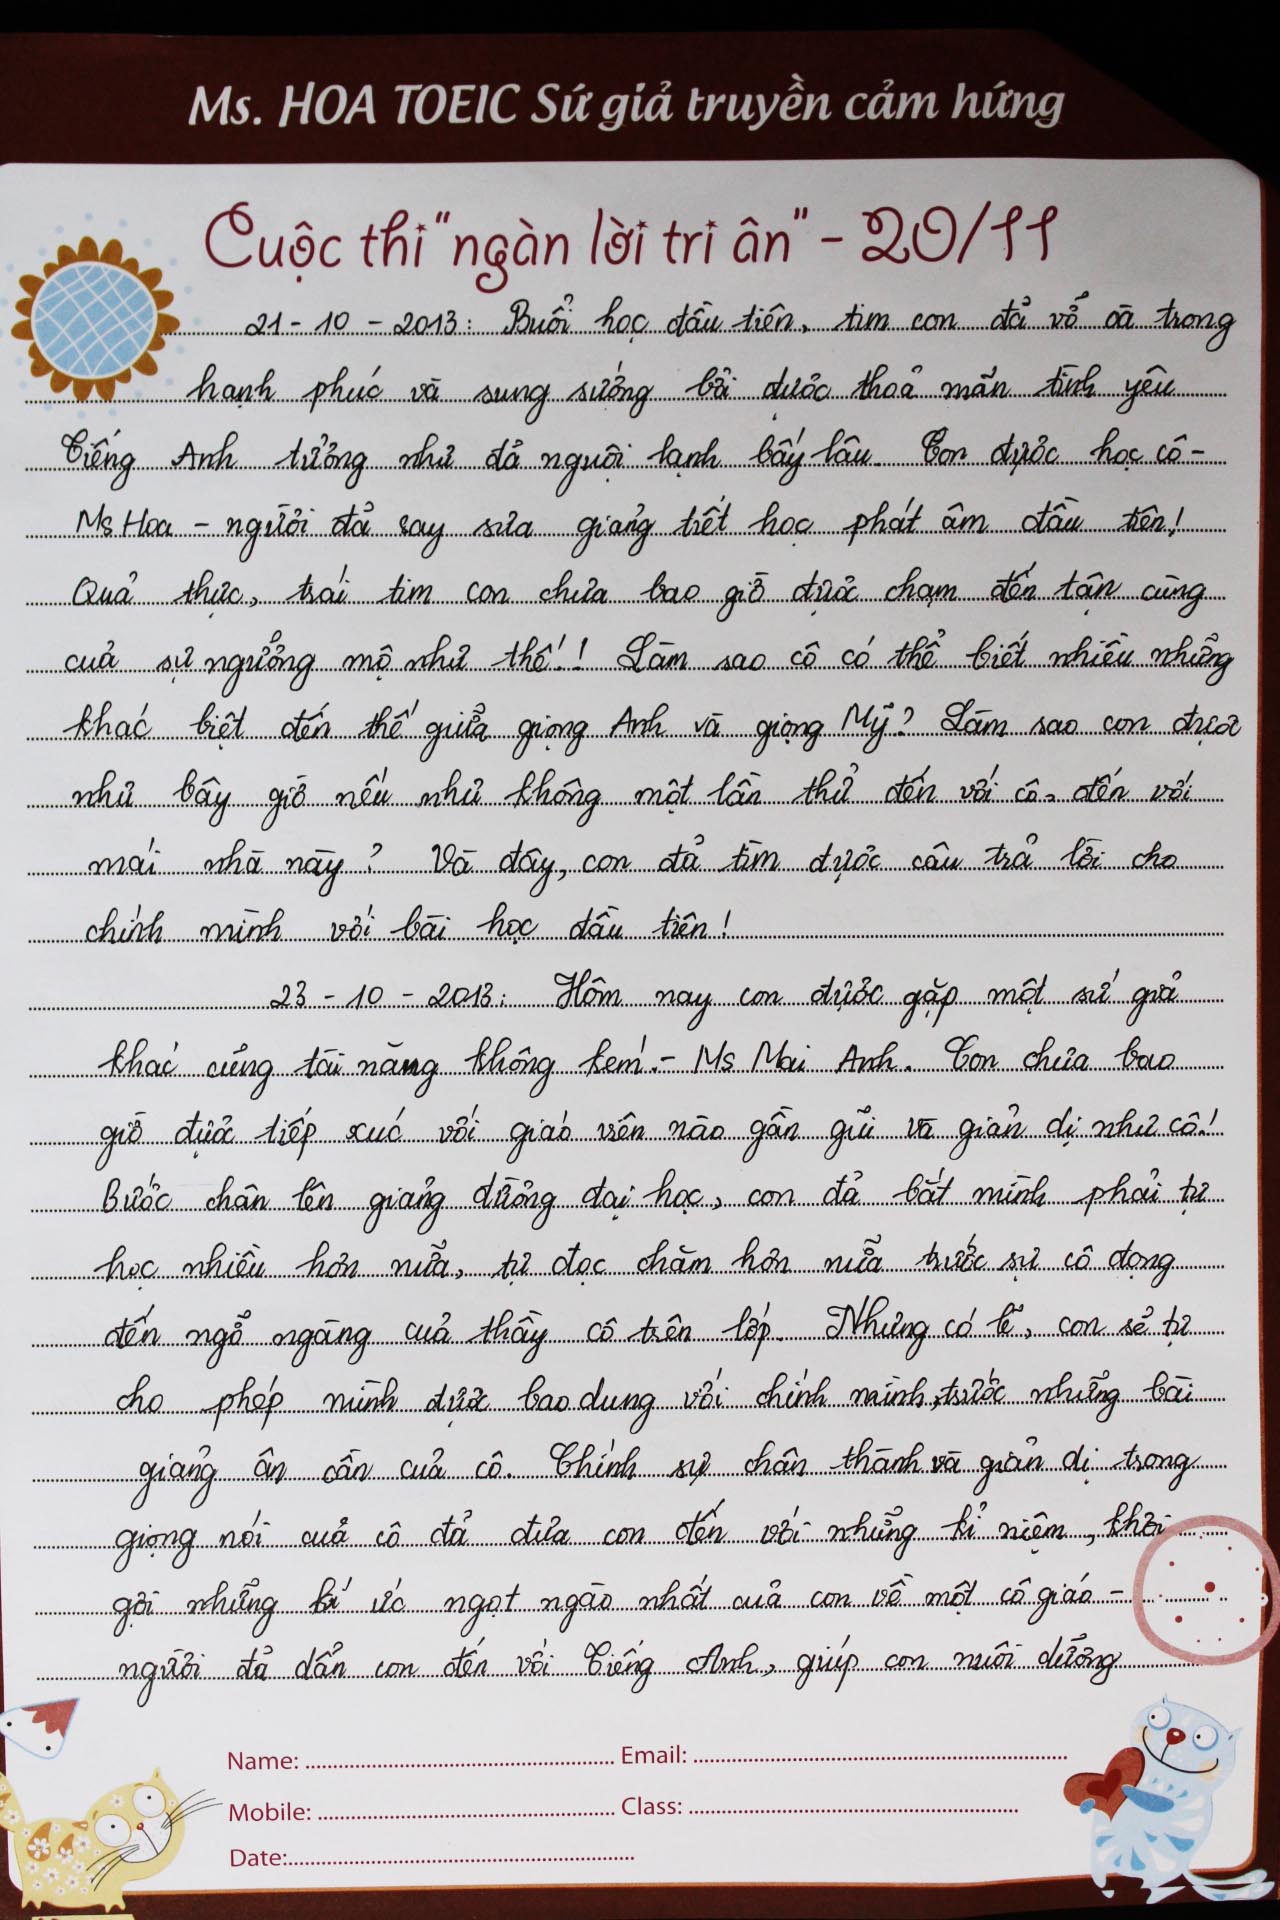 Ms. HOA TOEIC Sứ giả truyền cảm hứng
Cuộc thi "ngàn lời tri ân" - 20/11
21 - 10 - 2013: Buổi học đầu tiên, tim con đã vỡ oà trong
hạnh phúc và sung sướng bởi được thoả mãn tình yêu
Tiếng Anh tưởng như đã nguội lạnh bấy lâu. Con được học cô -
Ms Hoa - người đã say sưa giảng tiết học phát âm đầu tiên!
Quả thực, trái tim con chưa bao giờ được chạm đến tận cùng
của sự ngưỡng mộ như thế!! Làm sao cô có thể biết nhiều những
khác biệt đến thế giữa giọng Anh và giọng Mỹ? Làm sao con được
như bây giờ nếu như không một lần thử đến với cô, đến với
mái nhà này? Và đây, con đã tìm được câu trả lời cho
chính mình với bài học đầu tiên!
23 - 10 - 2013: Hôm nay con được gặp một sứ giả
khác cũng tài năng không kém - Ms Mai Anh. Con chưa bao
giờ được tiếp xúc với giáo viên nào gần gũi và giản dị như cô!
Bước chân lên giảng đường đại học, con đã bắt mình phải tự
học nhiều hơn nữa, tự đọc chăm hơn nữa trước sự cô đọng
đến ngỡ ngàng của thầy cô trên lớp. Nhưng có lẽ, con sẽ tự
cho phép mình được bao dung với chính mình, trước những bài
giảng ân cần của cô. Chính sự chân thành và giản dị trong
giọng nói của cô đã đưa con đến với những kỉ niệm, khơi
gợi những kí ức ngọt ngào nhất của con về một cô giáo -
người đã dẫn con đến với Tiếng Anh, giúp con nuôi dưỡng
Name: Email:
Mobile: Class:
Date: